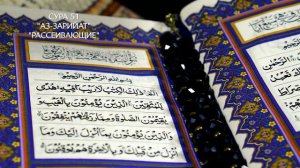 СУРА 51
"АЗ-ЗАРИЙАТ"
"РАССЕИВАЮЩИЕ"
بِسْمِ اللهِ الرَّحْمٰنِ الرَّحِيمِ
الٓمٓ ذٰلِكَ الْكِتَابُ لَا رَيْبَ فِيهِ هُدًى
لِلْمُتَّقِينَ الَّذِينَ يُؤْمِنُونَ بِالْغَيْبِ وَ
يُقِيمُونَ الصَّلٰوةَ وَمِمَّا رَزَقْنَاهُمْ يُنْفِقُونَ
وَالَّذِينَ يُؤْمِنُونَ بِمَا أُنْزِلَ إِلَيْكَ وَمَا
أُنْزِلَ مِنْ قَبْلِكَ وَبِالْاٰخِرَةِ هُمْ يُوقِنُونَ